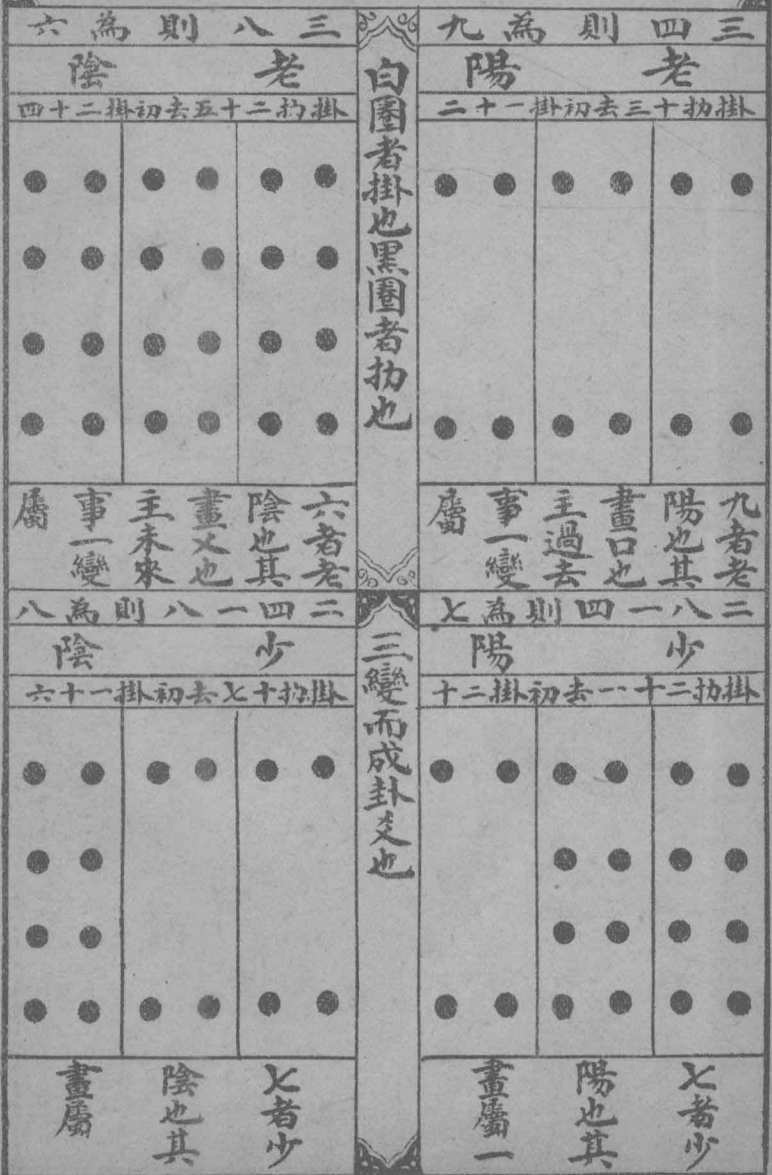 三四則為九
老陽
掛扐十三去初掛一十二
九者老
陽也其
畫口也
主過去
事一變
屬
白圈者掛也黑圈者扐也
三八則為六
老陰
掛扐二十五去初掛二十四
六者老
陰也其
畫乂也
主未來
事一變
屬
二八一四則為七
少陽
掛扐二十一去初掛二十
七者少
陽也其
畫屬一
三變而成卦爻也
二四一八則為八
少陰
掛扐十七去初掛一十六
七者少
陰也其
畫屬